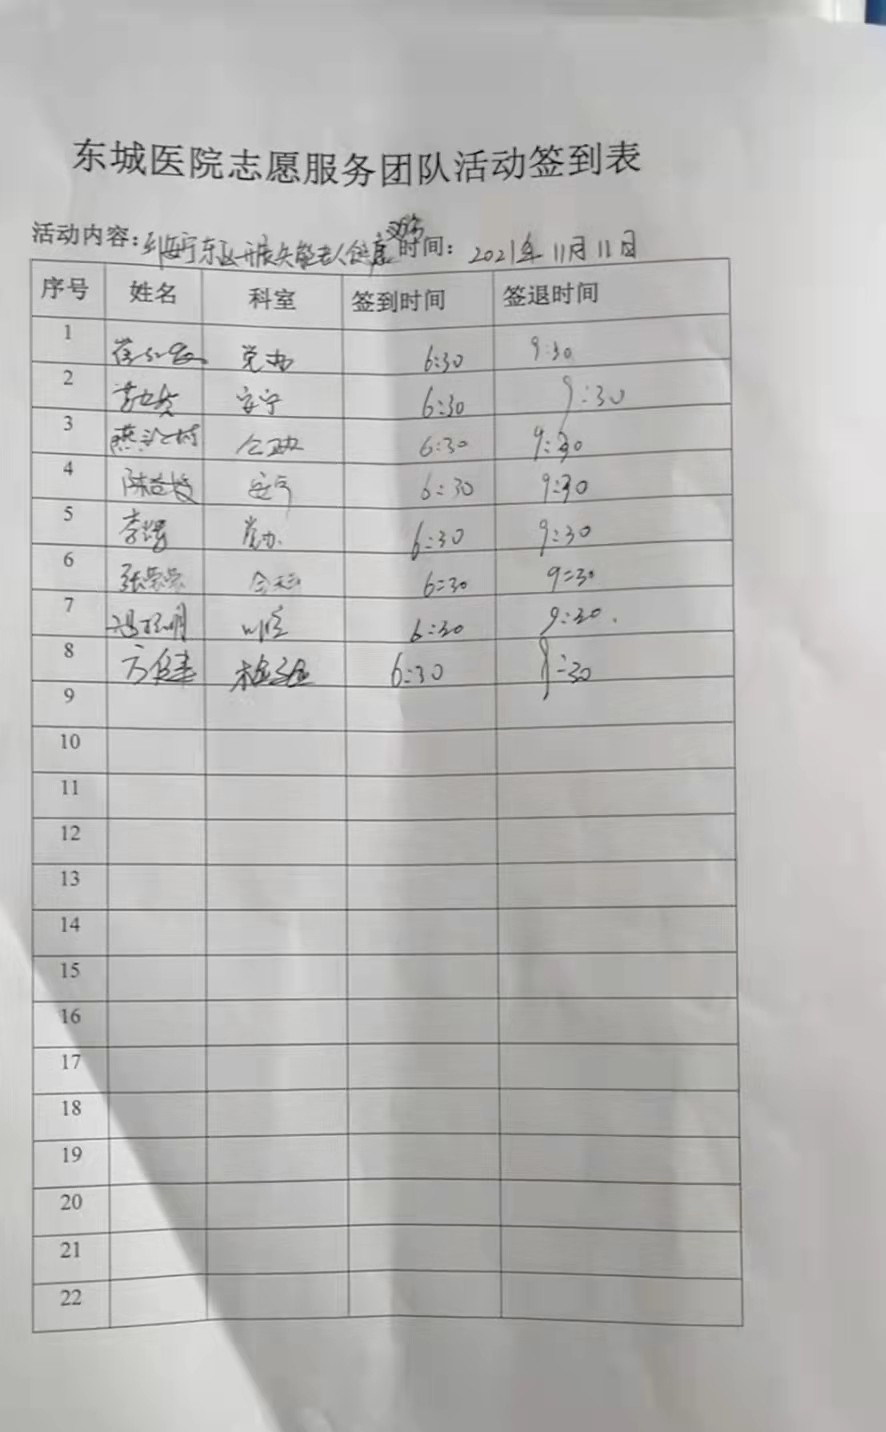 东城医院志愿服务团队活动签到表
活动内容：到安宁东区开展失能老人健康 时间： 2021年11月11日
序号 姓名 科室 签到时间 签退时间
1 党办 6:30 9:30
2 安宁 6:30 9:30
3 6:30 9:30
4 陈 安宁 6:30 9:30
5 李 党办 6:30 9:30
6 张 6:30 9:30
7 冯 明 门诊 6:30 9:30
8 方 6:30 9:30
9
10
11
12
13
14
15
16
17
18
19
20
21
22